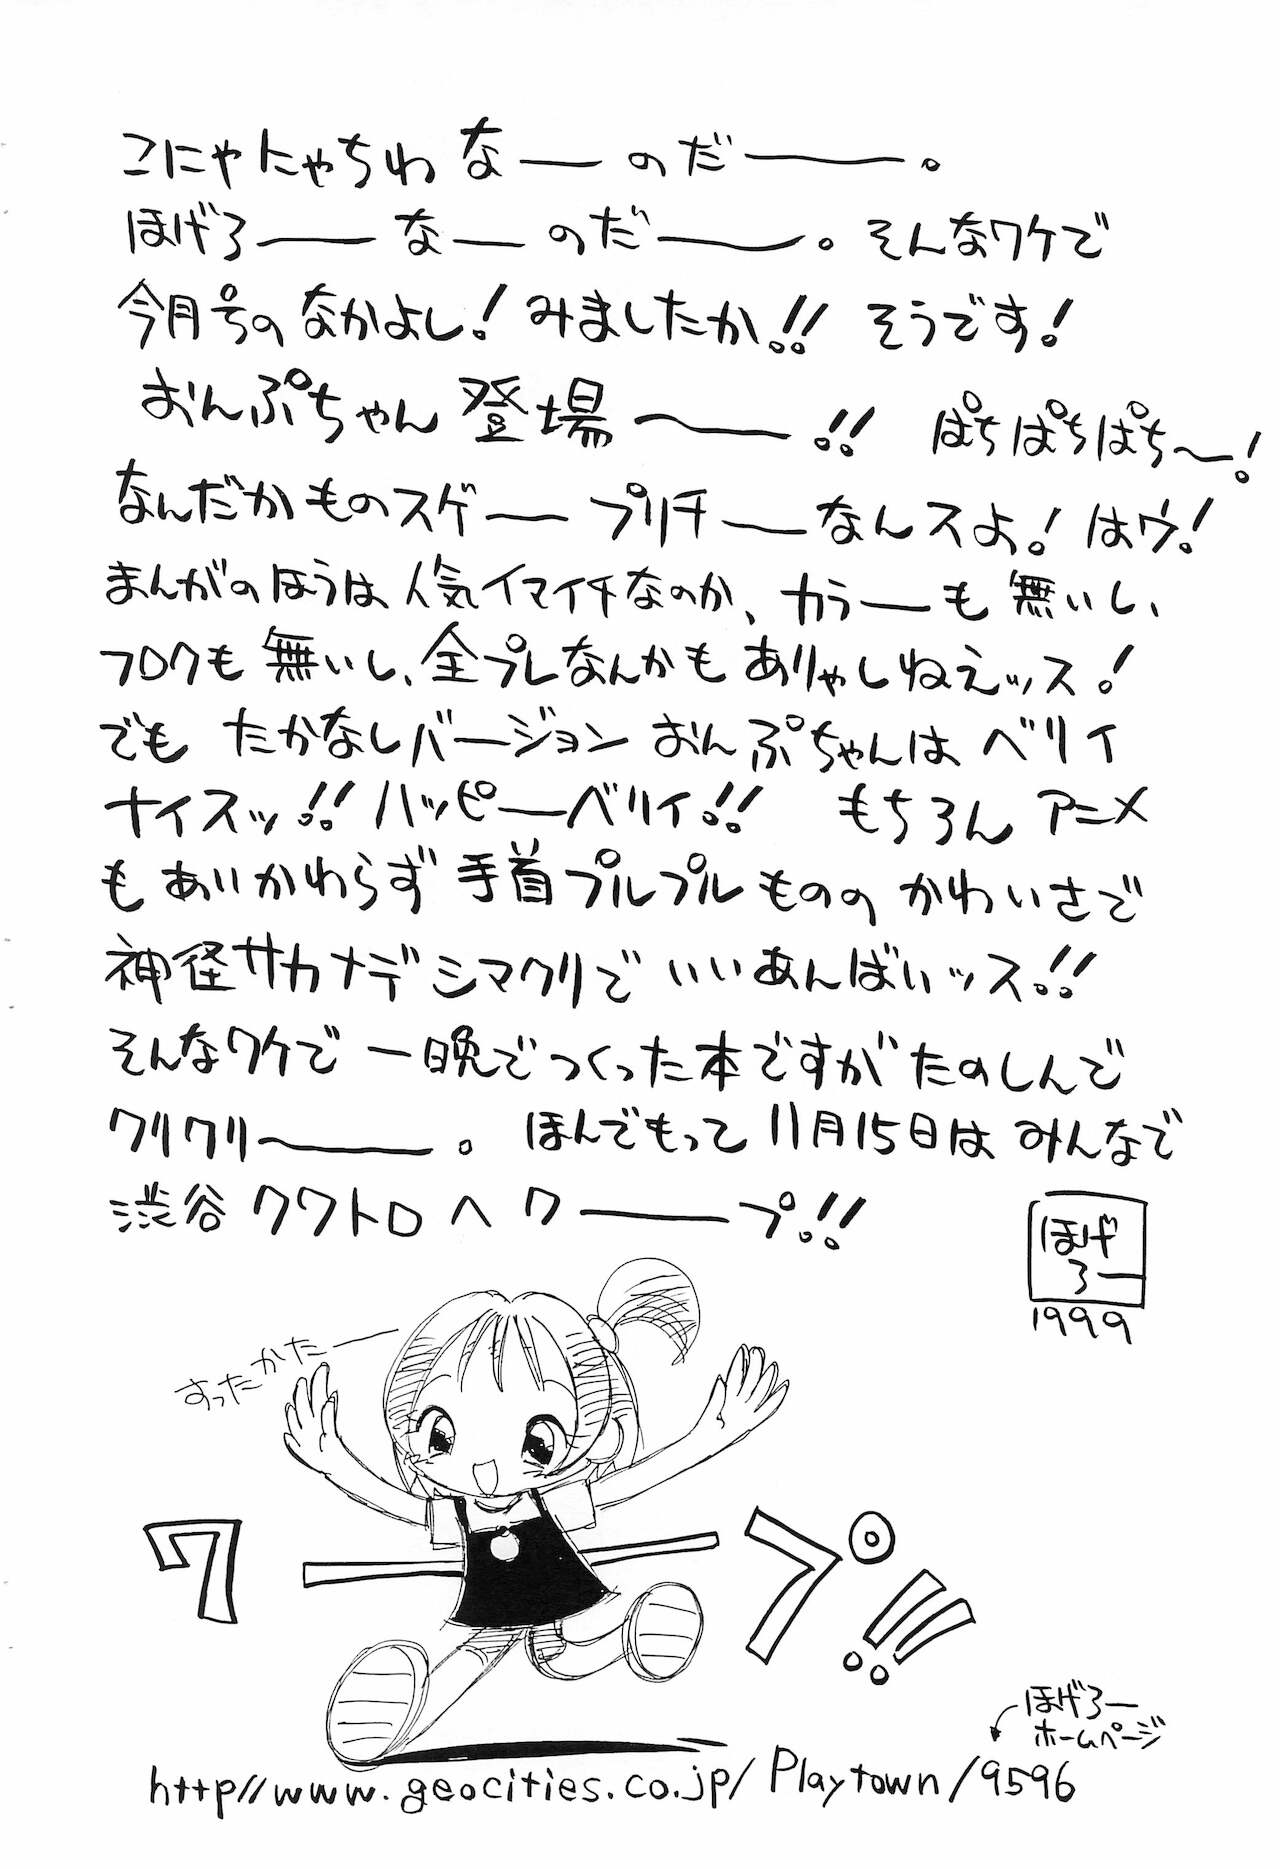 こにゃにゃちわ なーのだー。
ほげろーなーのだー。そんなワケで
今月号の なかよし! みましたか!! そうです!
おんぷちゃん 登場ー!! ぱちぱちぱち〜!
なんだかものスゲープリチーなんスよ! はウ!
まんがのほうは 人気イマイチなのか、カラーも 無いし、
フロクも 無いし、全プレなんかも ありゃしねえッス!
でも たかなしバージョン おんぷちゃんは ベリイ
ナイスッ!! ハッピーベリイ!! もちろん アニメ
も あいかわらず 手首プルプルものの かわいさで
神径サカナデシマクリで いいあんばいッス!!
そんなワケで 一晩でつくった本ですが たのしんで
クリクリー。 ほんでもって 11月15日は みんなで
渋谷 クワトロ へ ワープ!!
ほげ
ろー
1999
すったかたー
ワープ!!!
ほげろー
ホームページ
http//www.geocities.co.jp/Playtown/9596